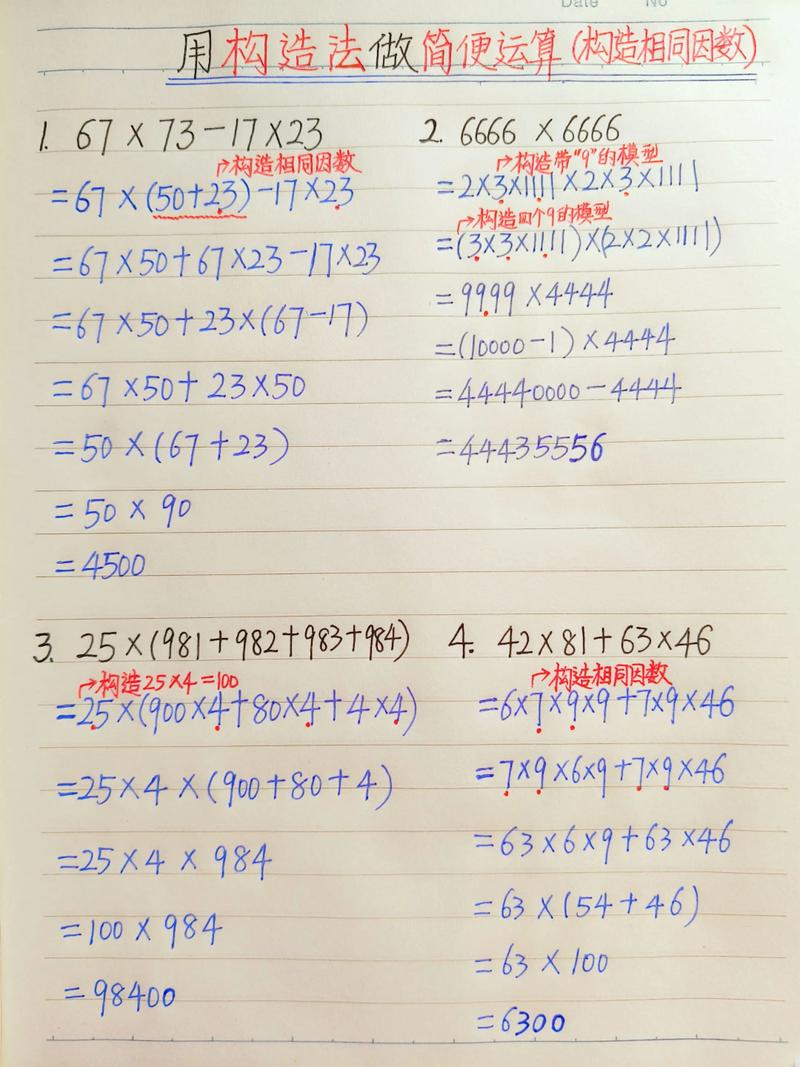 Date No
用构造法做简便运算(构造相同因数)
1. 67×73-17×23
构造相同因数
=67×(50+23)-17×23
=67×50+67×23-17×23
=67×50+23×(67-17)
=67×50+23×50
=50×(67+23)
=50×90
=4500
2. 6666×6666
构造带"9"的模型
=2×3×1111×2×3×1111
构造四个9的模型
=(3×3×1111)×(2×2×1111)
=9999×4444
=(10000-1)×4444
=44440000-4444
=44435556
3. 25×(981+982+983+984)
构造25×4=100
=25×(900×4+80×4+4×4)
=25×4×(900+80+4)
=25×4×984
=100×984
=98400
4. 42×81+63×46
构造相同因数
=6×7×9×9+7×9×46
=7×9×6×9+7×9×46
=63×6×9+63×46
=63×(54+46)
=63×100
=6300